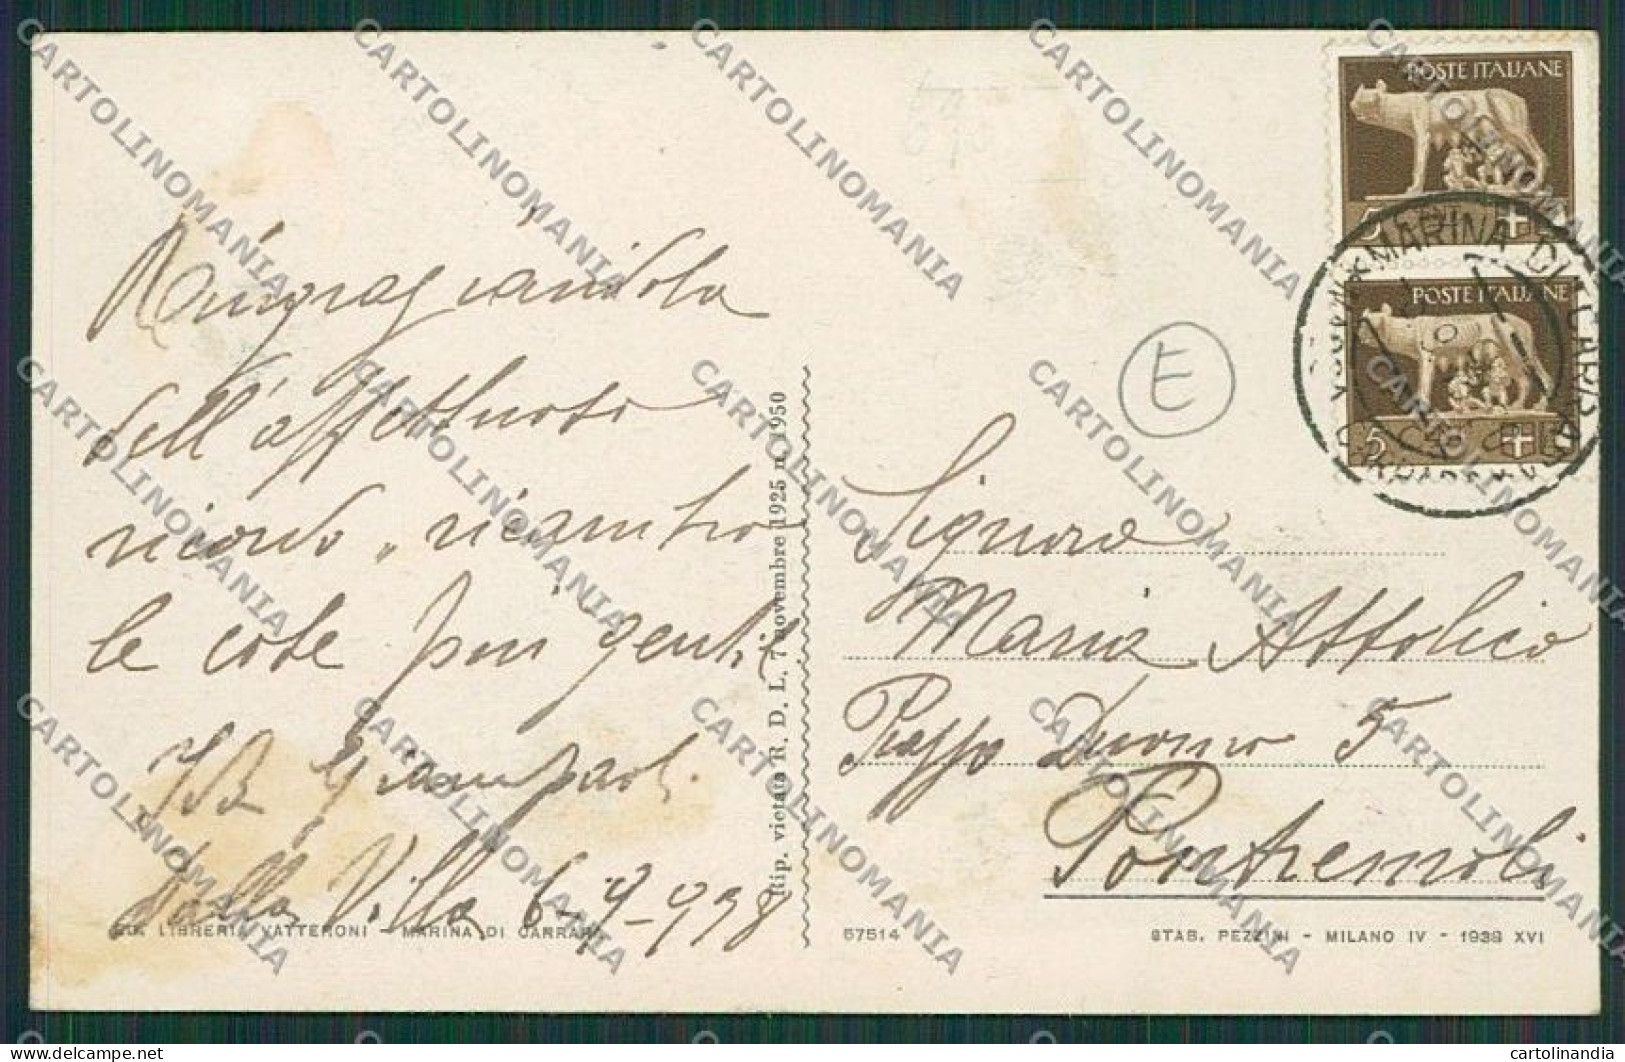 Ringraziandola
dell'affettuoso
ricordo, ricambio
le cose piu gentili
Giampaoli
dalla Villa 6-9-938
Ed. LIBRERIA VATTERONI - MARINA DI CARRARA
Rip. vietata R. D. L. 7 novembre 1925 n. 1950
57514
E
POSTE ITALIANE
5
POSTE ITALIANE
5
MARINA DI CARRARA
Signora
Maria Attolico
Piazza Duomo 5
Pontremoli
STAB. PEZZINI - MILANO IV - 1938 XVI
CARTOLINOMANIA
cartolinandia